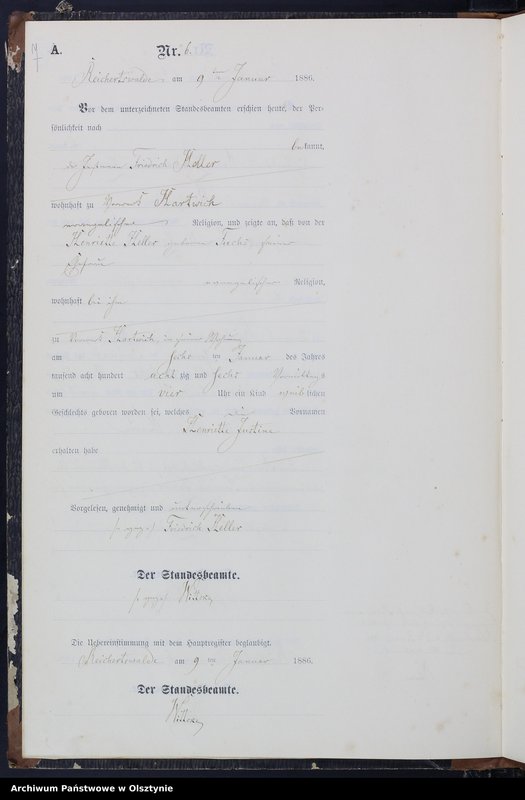 A.
Nr. 6.
Reichertswalde am 9 ten Januar 1886.
Vor dem unterzeichneten Standesbeamten erschien heute, der Per-
sönlichkeit nach
bekannt,
der Friedrich Keller
wohnhaft zu Vorwerk Hartwich
evangelischer Religion, und zeigte an, daß von der
Henriette Keller geborene seiner
Ehefrau
evangelischer Religion,
wohnhaft bei ihm
zu Vorwerk Hartwich, in seiner Wohnung
am sechs ten Januar des Jahres
tausend acht hundert acht zig und sechs Vormittags
um vier Uhr ein Kind weiblichen
Geschlechts geboren worden sei, welches die Vornamen
Henriette Justine
erhalten habe
Vorgelesen, genehmigt und unterschrieben
Friedrich Keller
Der Standesbeamte.
Die Uebereinstimmung mit dem Hauptregister beglaubigt.
Reichertswalde am 9 ten Januar 1886.
Der Standesbeamte.
Archiwum Państwowe w Olsztynie